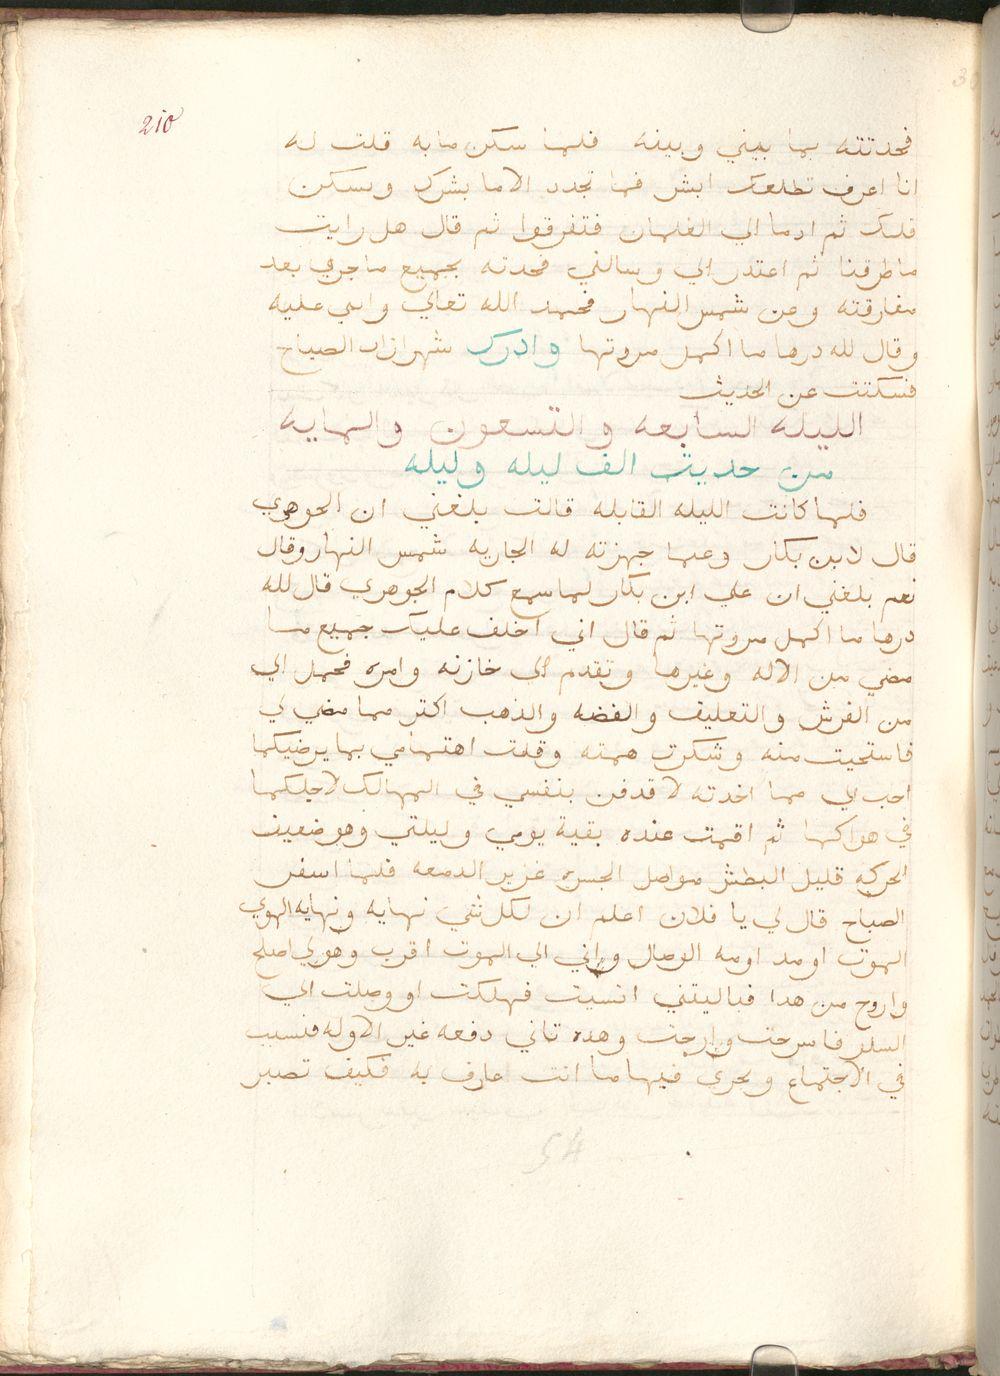 210
فحدثته بما بيني وبينه فلما سكن مابه قلت له
انا اعرف تطلعك ابشر فما تجدد الا ما بشرك ويسكن
قلبك ثم اوما الي الغلمان فتفرقوا ثم قال هل رايت
ماطرقنا ثم اعتذر الي وسالني فحدته بجميع ماجري بعد
مفارقته وعن شمس النهار فحمد الله تعالي واثني عليه
وقال لله درها ما اكمل مروتها وادرك شهرازاد الصباح
فسكتت عن الحديث
الليله السابعه والتسعون والمايه
من حديث الف ليله وليله
فلما كانت الليله القابله قالت بلغني ان الجوهري
قال لابن بكار وعما جهزته له الجاريه شمس النهار وقال
نعم بلغني ان علي ابن بكار لما سمع كلام الجوهري قال لله
درها ما اكمل مروتها ثم قال اني اخلف عليك جميع ما
مضي من الاله وغيرها وتقدم الي خازنه وامره فحمل الي
من الفرش والتعليف والفضه والدهب اكتر مما مضي لي
فاستحيت منه وشكرت همته وقلت اهتمامي بما يرضيكما
احب الي مما اخدته لاقدفن بنفسي في المهالك لاجلكما
في هواكما ثم اقمت عنده بقية يومي وليلتي وهو ضعيف
الحركه قليل البطش مواصل الحسره غزير الدمعه فلما اسفر
الصباح قال لي يا فلان اعلم ان لكل شي نهايه ونهايه الهوي
الموت او مداومه الوصال واني الي الموت اقرب وهو لي اصلح
واروح من هدا فياليتني انسيت فهلكت او وصلت الي
السلو فاسرحت وارحت وهده تاني دفعه غير الاوله فنسبب
في الاجتماع ويجري فيها ما انت عارف به فكيف تصبر
54